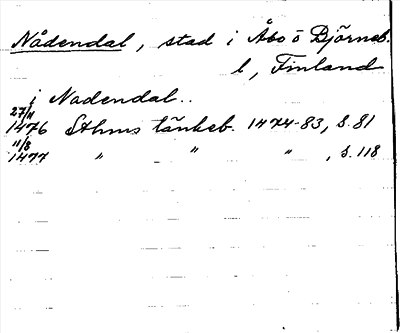 Nådendal, stad i Åbo o Björneb.
l, Finland
i Nadendal..
27/11
1476 Sthms tänkeb. 1474-83, s. 81
11/8
1477 " " " , s. 118